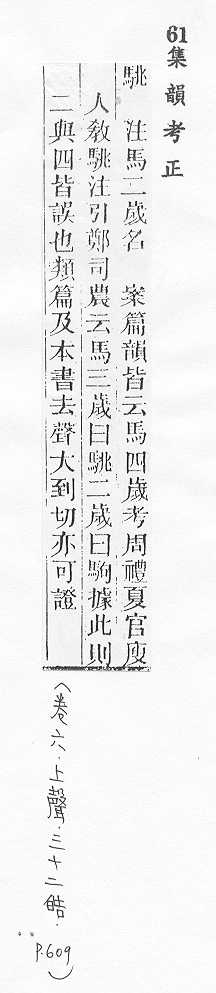 61集韻考正
駣 注馬二歲名 案篇韻皆云馬四歲考周禮夏官廋
人敎駣注引鄭司農云馬三歲曰駣二歲曰駒據此則
二與四皆誤也類篇及本書去聲大到切亦可證
(卷六.上聲.三十二皓.
P.609)